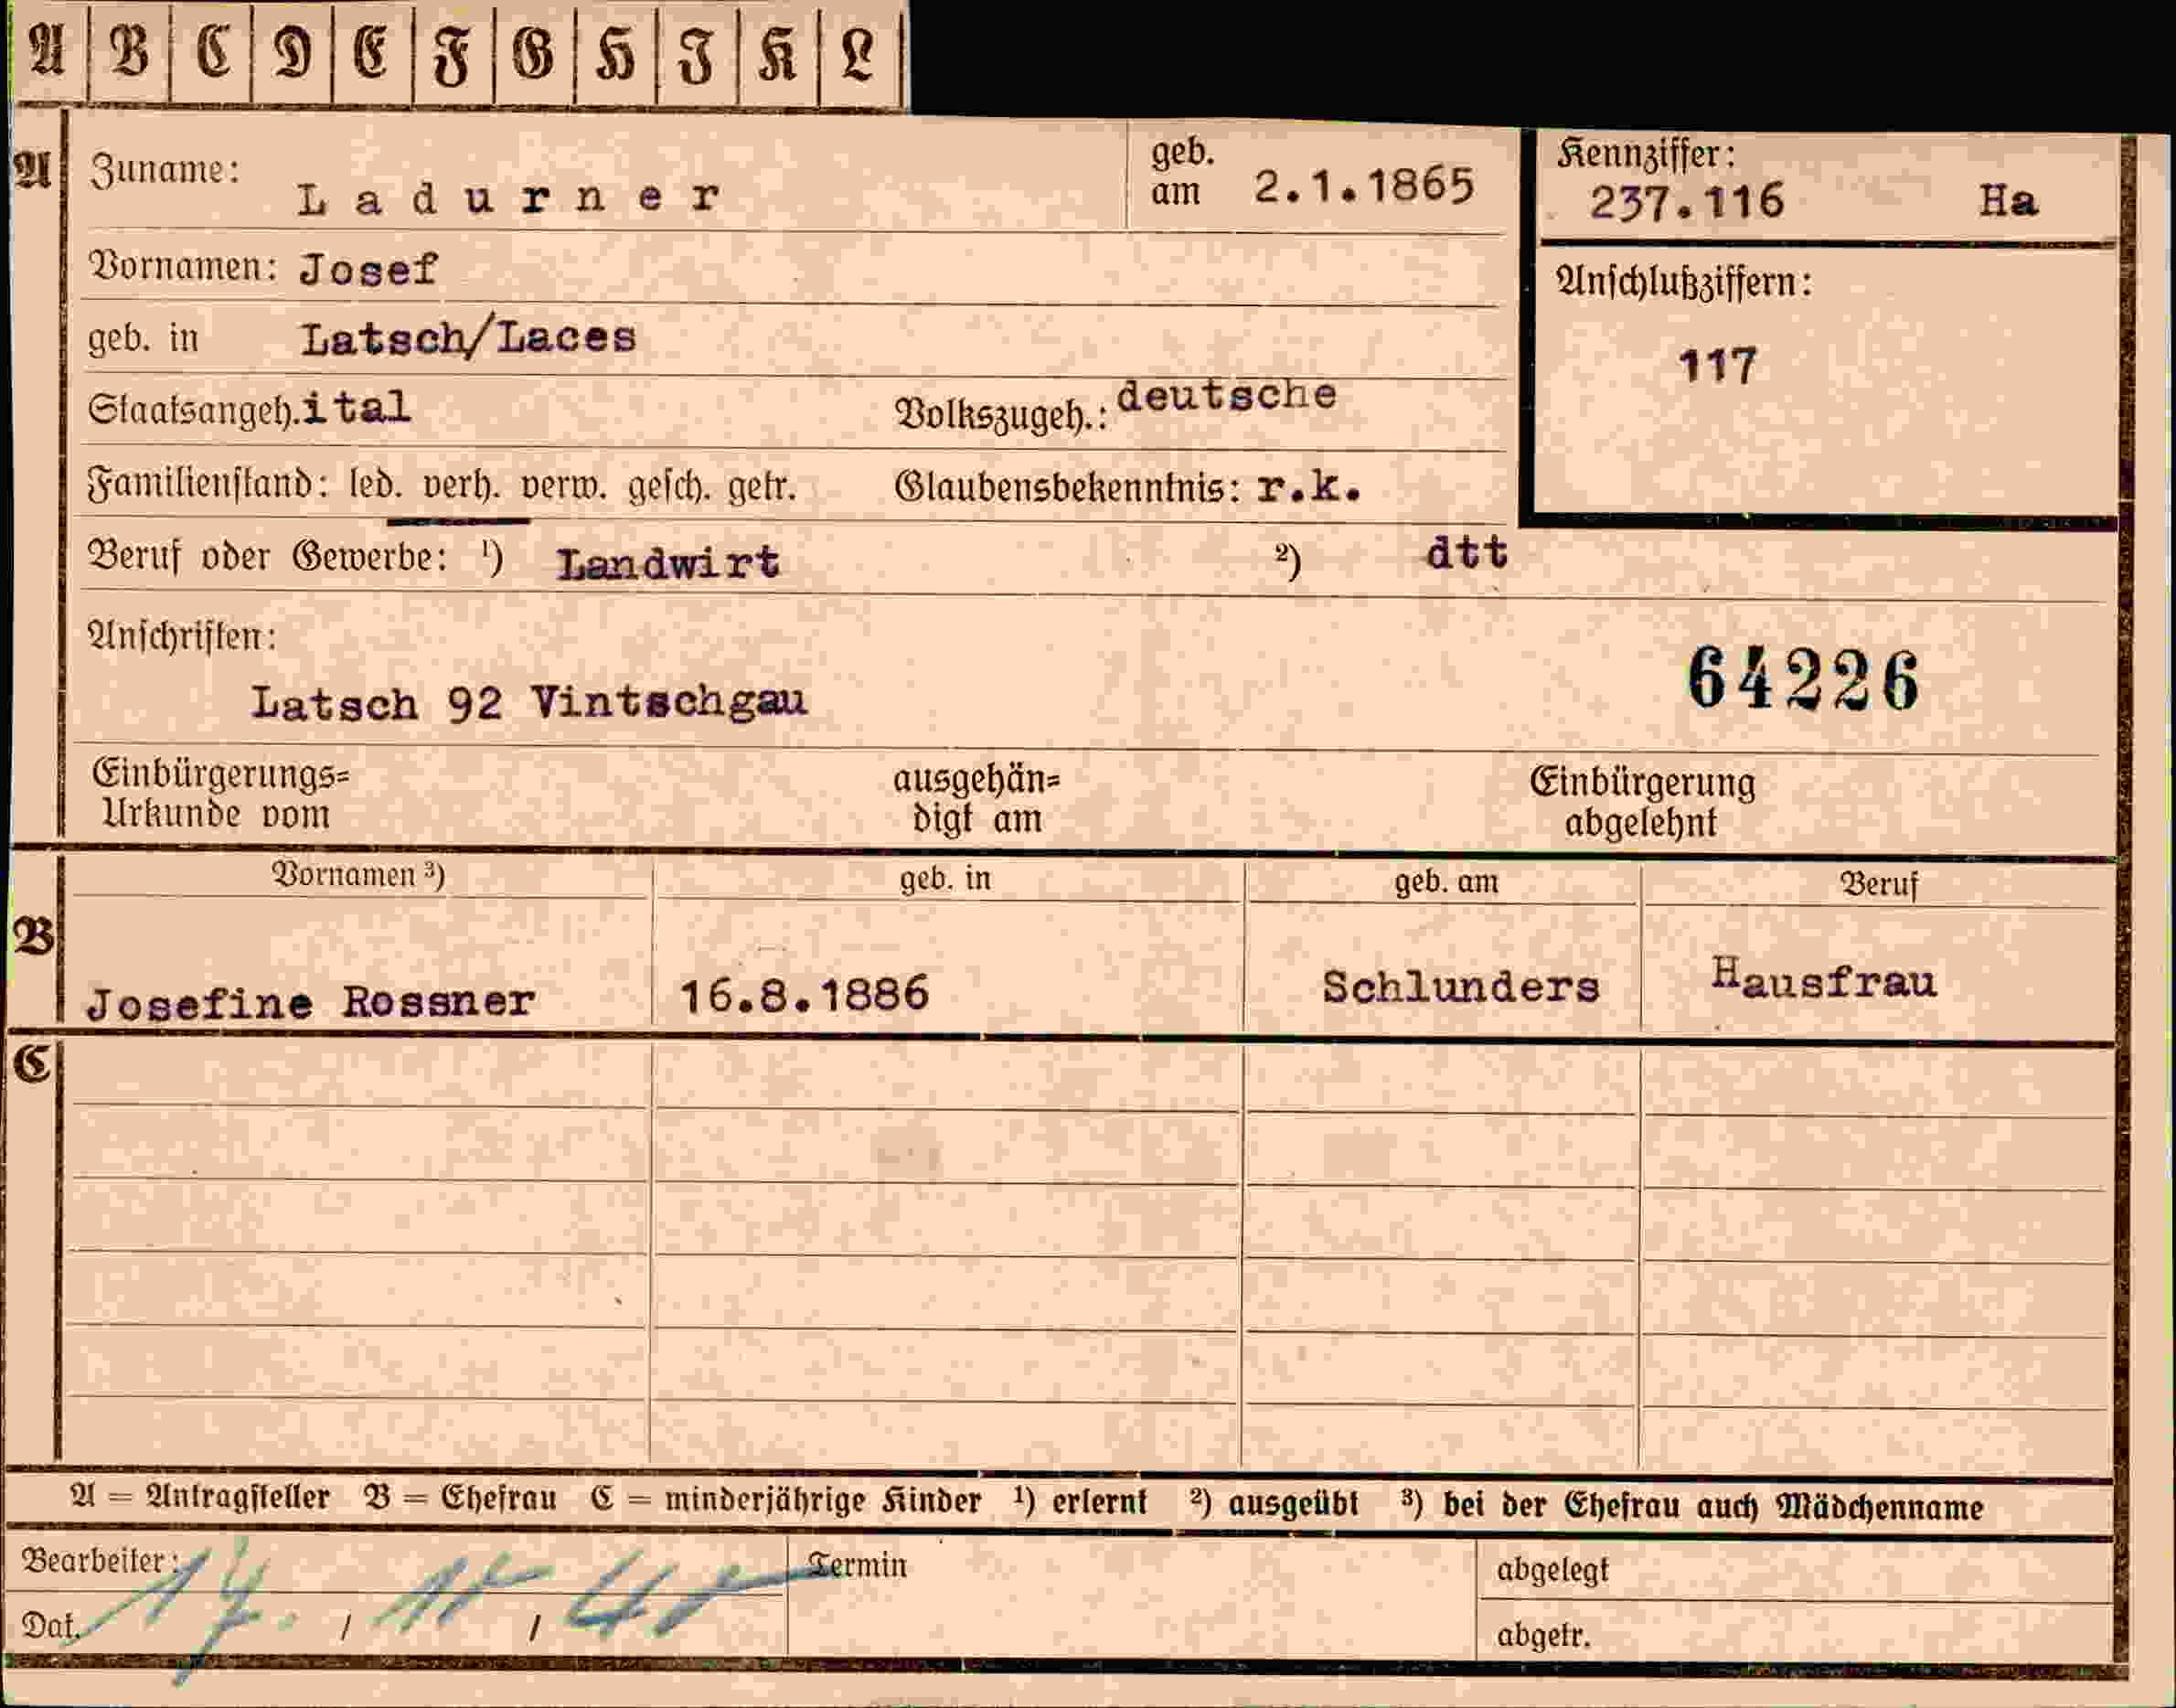 A B C D E F G H I K L
A Zuname: Ladurner geb. am 2.1.1865 Kennziffer: 237.116 Ha
Vornamen: Josef Anschlußziffern:
geb. in Latsch/Laces 117
Staatsangeh. ital Volkszugeh.: deutsche
Familienstand: led. verh. verw. gesch. getr. Glaubensbekenntnis: r.k.
Beruf oder Gewerbe: ¹) Landwirt ²) dtt
Anschriften:
Latsch 92 Vintschgau 64226
Einbürgerungs= ausgehän= Einbürgerung
Urkunde vom digt am abgelehnt
Vornamen ³) geb. in geb. am Beruf
B Josefine Rossner 16.8.1886 Schlunders Hausfrau
C
A = Antragsteller B = Ehefrau C = minderjährige Kinder ¹) erlernt ²) ausgeübt ³) bei der Ehefrau auch Mädchenname
Bearbeiter: Termin abgelegt
Dat. / / abgetr.